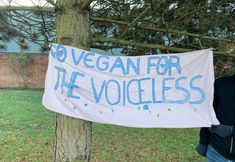 VEGAN FOR
THE VOICELESS